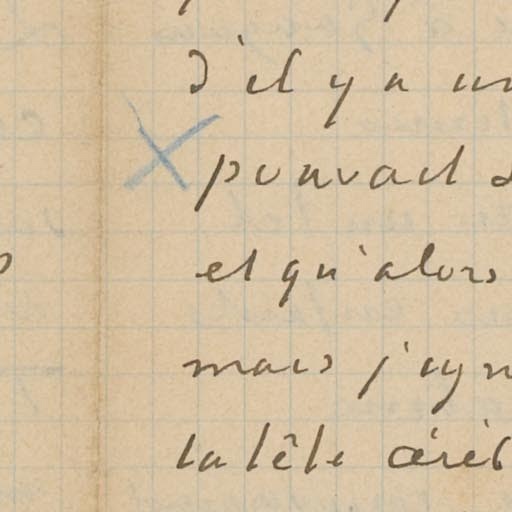 d'il y a un
pouvait
et qu'alors
mais j'ign
la tête céréb